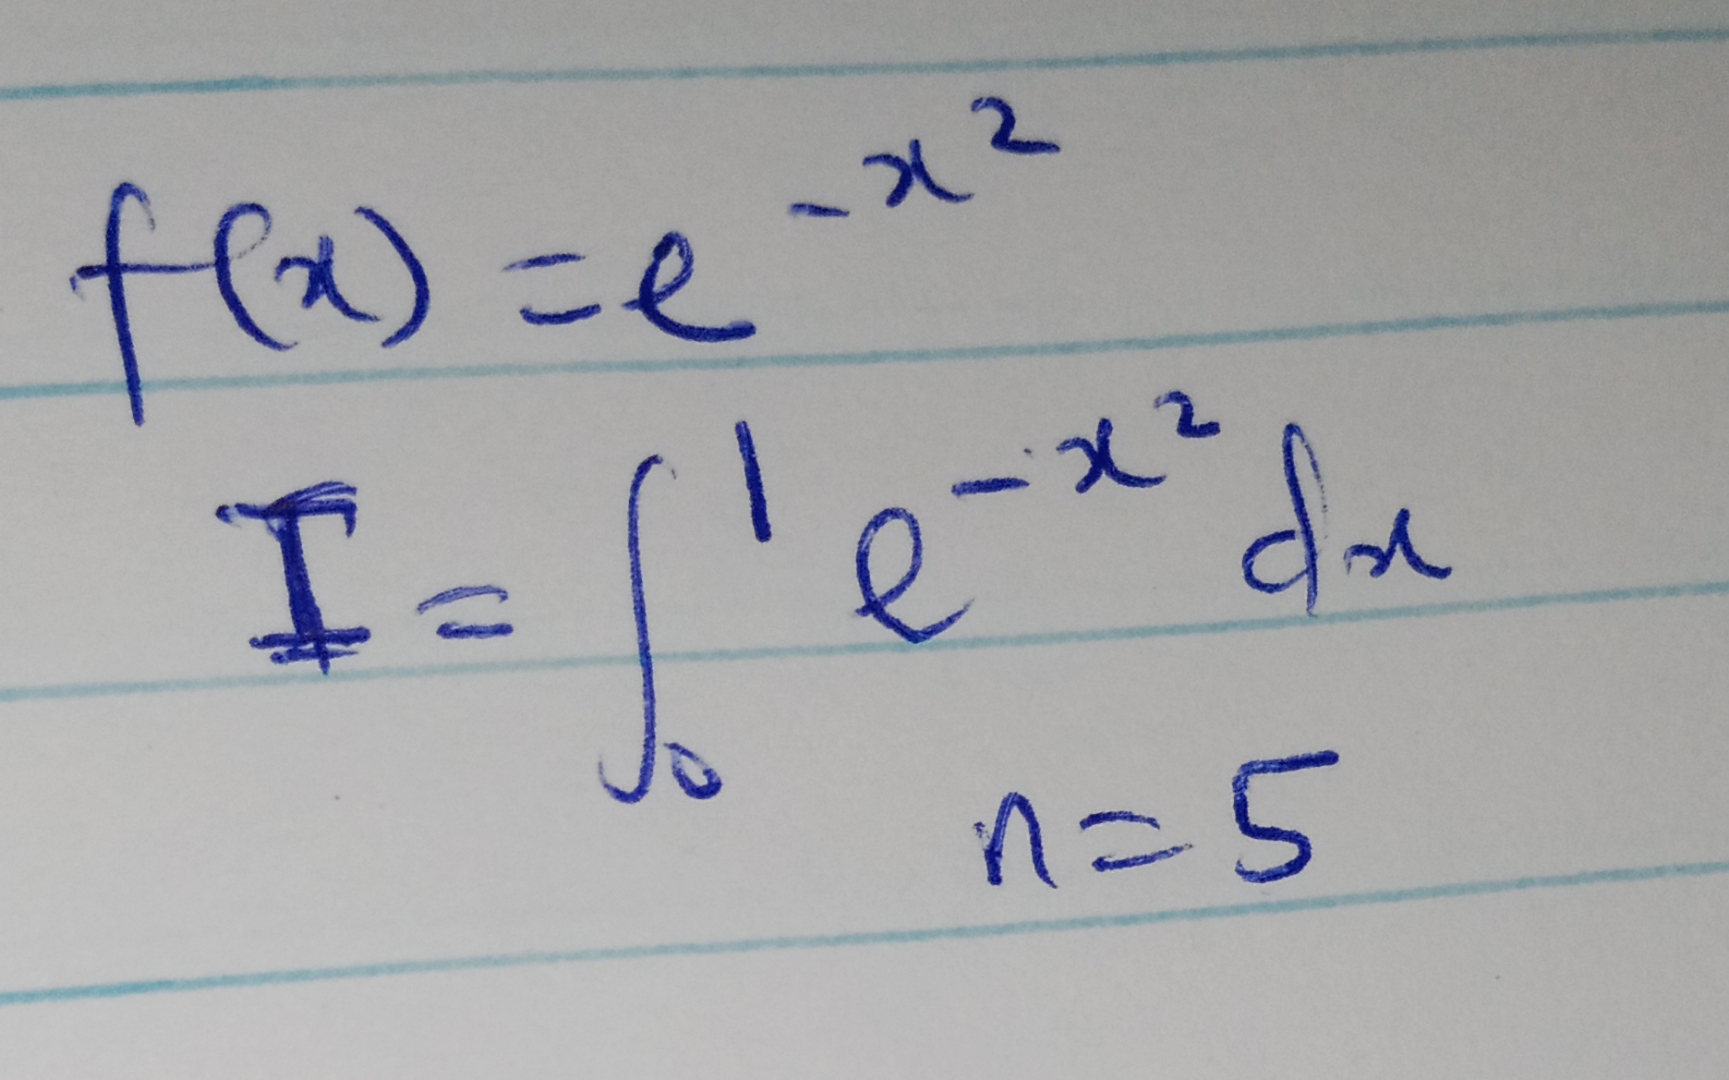 f(x) = e^{-x^2}
I = ∫_0^1 e^{-x^2} dx
n = 5